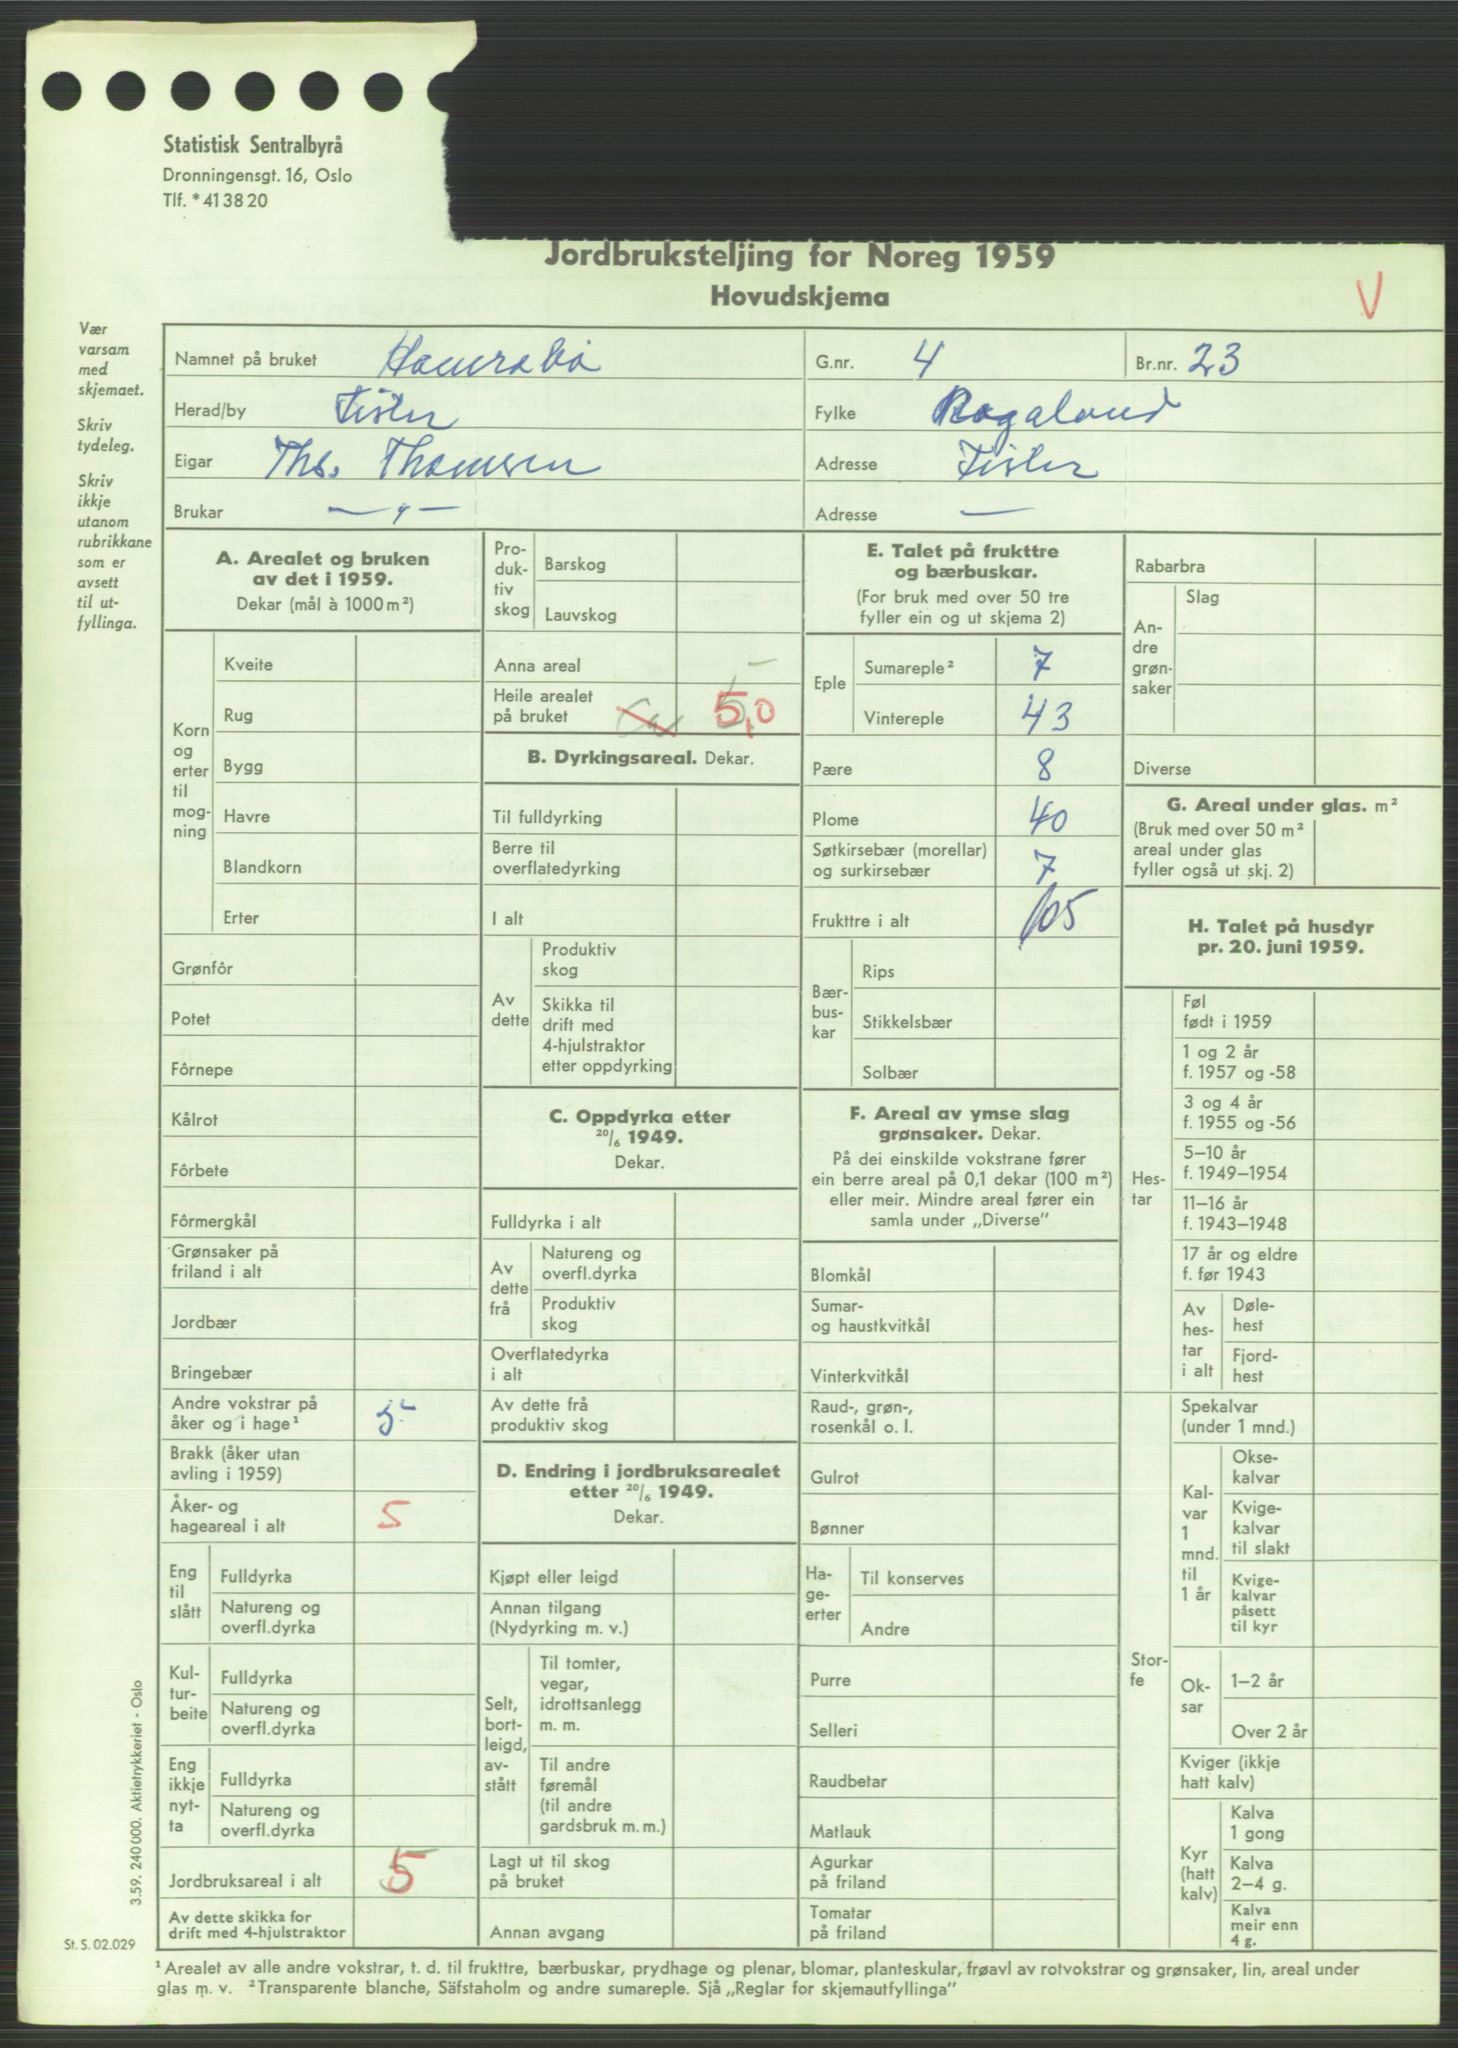 Statistisk Sentralbyrå
Dronningensgt. 16, Oslo
Tlf. * 41 38 20
Jordbruksteljing for Noreg 1959
Hovudskjema
V
Vær
varsam
med
skjemaet.
Skriv
tydeleg.
Skriv
ikkje
utanom
rubrikkane
som er
avsett
til ut-
fyllinga.
Namnet på bruket
G.nr. 4
Br.nr. 23
Herad/by Fister
Fylke Rogaland
Eigar Ths. Thomsen
Adresse Fister
Brukar — " —
Adresse —
A. Arealet og bruken
av det i 1959.
Dekar (mål à 1000 m²)
Korn
og
erter
til
mog-
ning
Kveite
Rug
Bygg
Havre
Blandkorn
Erter
Grønfôr
Potet
Fôrnepe
Kålrot
Fôrbete
Fôrmergkål
Grønsaker på
friland i alt
Jordbær
Bringebær
Andre vokstrar på
åker og i hage¹ 5
Brakk (åker utan
avling i 1959)
Åker- og
hageareal i alt 5
Eng
til
slått
Fulldyrka
Natureng og
overfl.dyrka
Kul-
tur-
beite
Fulldyrka
Natureng og
overfl.dyrka
Eng
ikkje
nyt-
ta
Fulldyrka
Natureng og
overfl.dyrka
Jordbruksareal i alt 5
Av dette skikka for
drift med 4-hjulstraktor
Pro-
duk-
tiv
skog
Barskog
Lauvskog
Anna areal —
Heile arealet
på bruket 5,0
B. Dyrkingsareal. Dekar.
Til fulldyrking
Berre til
overflatedyrking
I alt
Av
dette
Produktiv
skog
Skikka til
drift med
4-hjulstraktor
etter oppdyrking
C. Oppdyrka etter
20/6 1949.
Dekar.
Fulldyrka i alt
Av
dette
frå
Natureng og
overfl.dyrka
Produktiv
skog
Overflatedyrka
i alt
Av dette frå
produktiv skog
D. Endring i jordbruksarealet
etter 20/6 1949.
Dekar.
Kjøpt eller leigd
Annan tilgang
(Nydyrking m. v.)
Selt,
bort-
leigd,
av-
stått
Til tomter,
vegar,
idrottsanlegg
m. m.
Til andre
føremål
(til andre
gardsbruk m. m.)
Lagt ut til skog
på bruket
Annan avgang
E. Talet på frukttre
og bærbuskar.
(For bruk med over 50 tre
fyller ein og ut skjema 2)
Eple
Sumareple² 7
Vintereple 43
Pære 8
Plome 40
Søtkirsebær (morellar)
og surkirsebær 7
Frukttre i alt 105
Bær-
bus-
kar
Rips
Stikkelsbær
Solbær
F. Areal av ymse slag
grønsaker. Dekar.
På dei einskilde vokstrane fører
ein berre areal på 0,1 dekar (100 m²)
eller meir. Mindre areal fører ein
samla under „Diverse"
Blomkål
Sumar-
og haustkvitkål
Vinterkvitkål
Raud-, grøn-,
rosenkål o. l.
Gulrot
Bønner
Ha-
ge-
erter
Til konserves
Andre
Purre
Selleri
Raudbetar
Matlauk
Agurkar
på friland
Tomatar
på friland
Rabarbra
An-
dre
grøn-
saker
Slag
Diverse
G. Areal under glas. m²
(Bruk med over 50 m²
areal under glas
fyller også ut skj. 2)
H. Talet på husdyr
pr. 20. juni 1959.
Hes-
tar
Føl
født i 1959
1 og 2 år
f. 1957 og -58
3 og 4 år
f. 1955 og -56
5–10 år
f. 1949–1954
11–16 år
f. 1943–1948
17 år og eldre
f. før 1943
Av
hes-
tar
i alt
Døle-
hest
Fjord-
hest
Stor-
fe
Spekalvar
(under 1 mnd.)
Kal-
var
1
mnd.
til
1 år
Okse-
kalvar
Kvige-
kalvar
til slakt
Kvige-
kalvar
påsett
til kyr
Ok-
sar
1–2 år
Over 2 år
Kviger (ikkje
hatt kalv)
Kyr
(hatt
kalv)
Kalva
1 gong
Kalva
2–4 g.
Kalva
meir enn
4 g.
3.59. 240 000. Aktietrykkeriet - Oslo
St. S. 02.029
¹ Arealet av alle andre vokstrar, t. d. til frukttre, bærbuskar, prydhage og plenar, blomar, planteskular, frøavl av rotvokstrar og grønsaker, lin, areal under
glas m. v. ² Transparente blanche, Säfstaholm og andre sumareple. Sjå „Reglar for skjemautfyllinga"